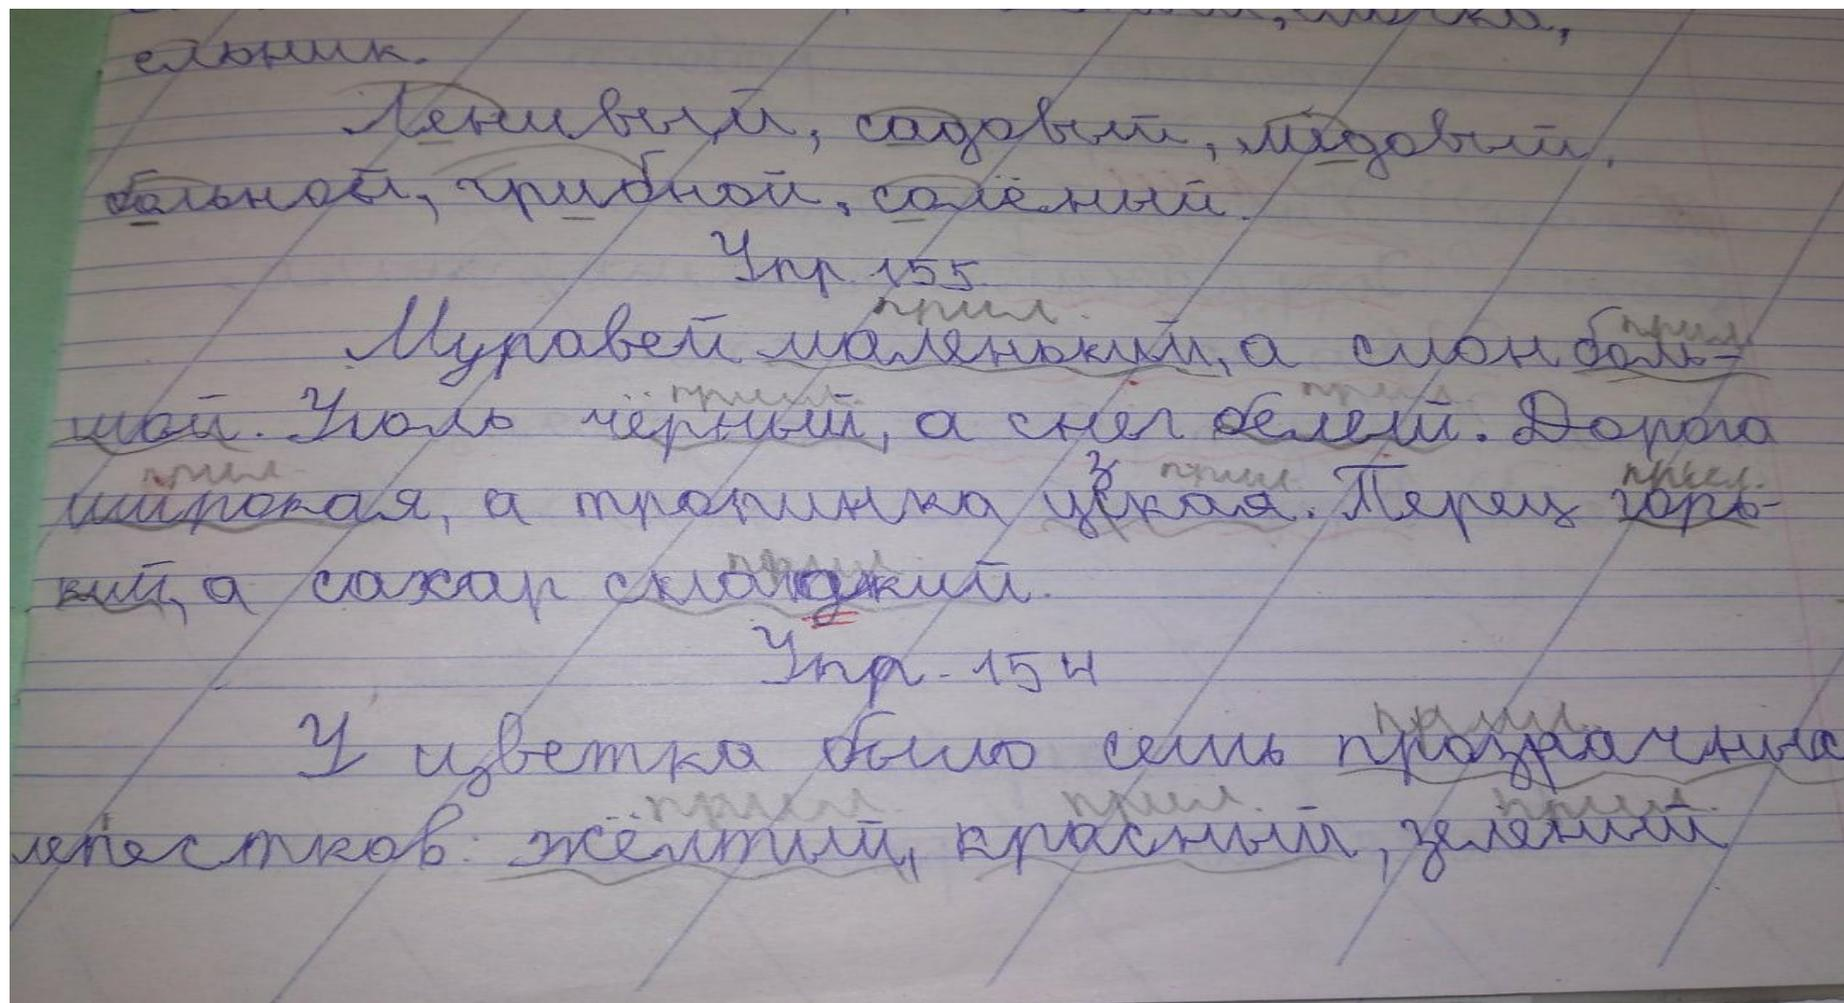 ельник.
Ленивый, садовый, медовый,
больной, грибной, солёный.
Упр. 155
прил. прил.
Муравей маленький, а слон боль-
прил. прил.
шой. Уголь чёрный, а снег белый. Дорога
прил. з прил. прил.
широкая, а тропинка уская. Перец горь-
прил.
кий, а сахар сладкий.
Упр. 154
прил.
У цветка было семь прозрачных
прил. прил. прил.
лепестков: жёлтый, красный, зелёный